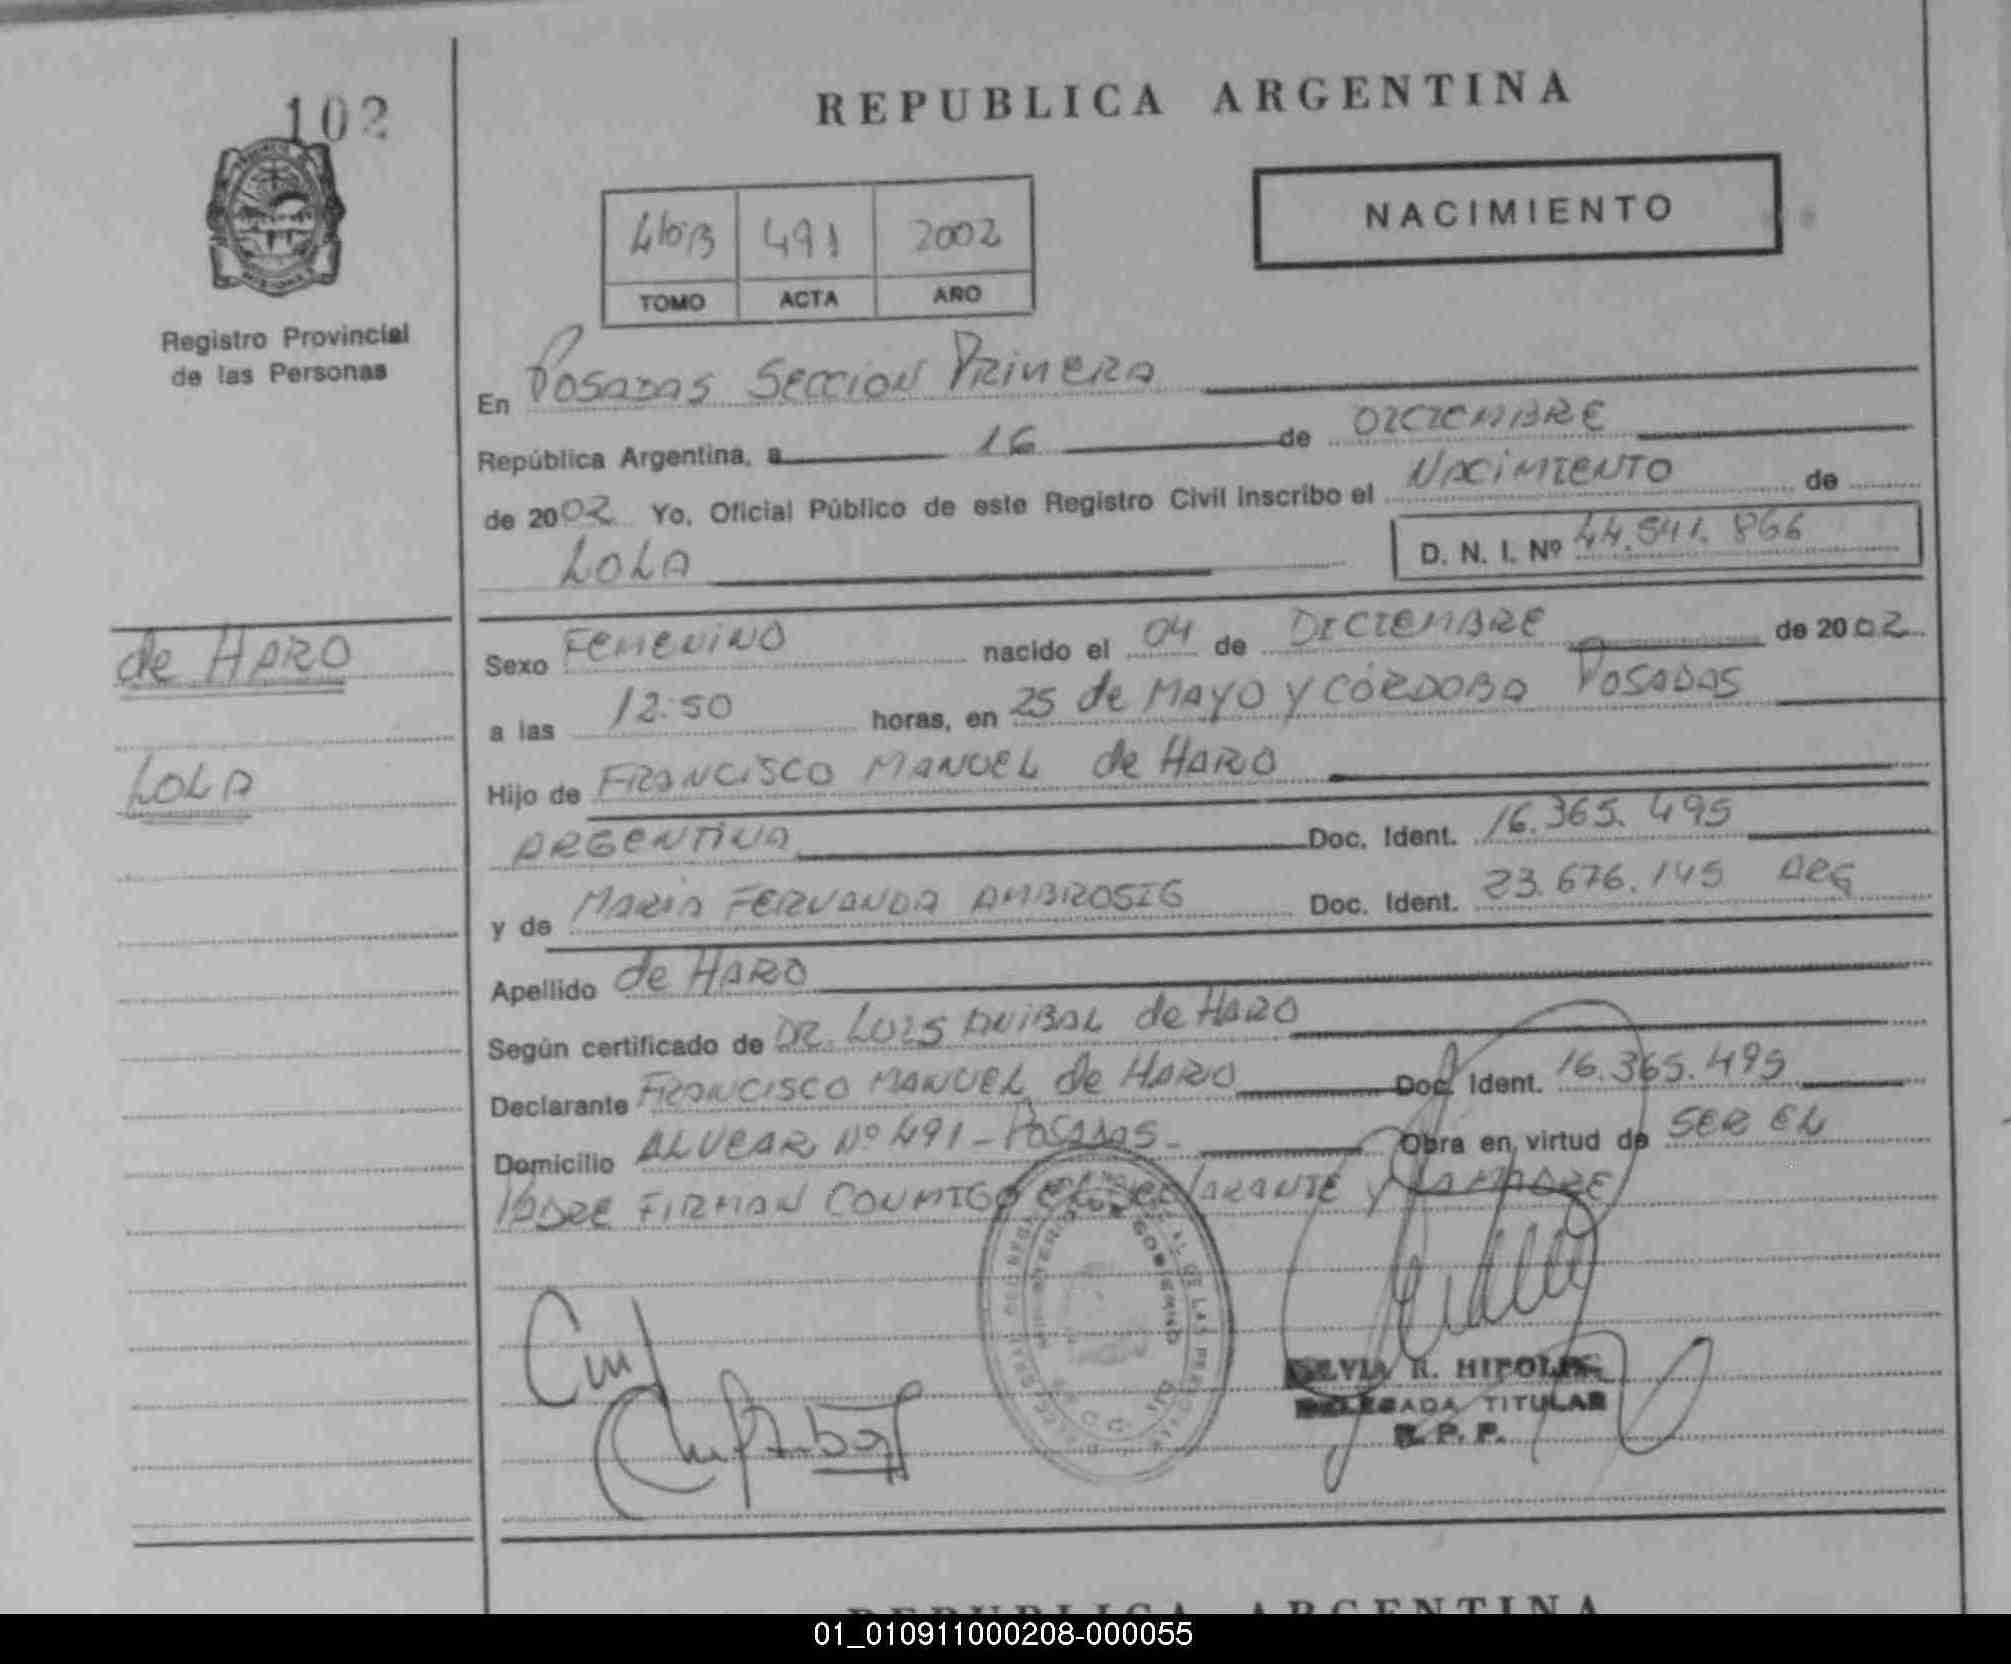 102
REPUBLICA ARGENTINA
NACIMIENTO
491 2002
TOMO ACTA AÑO
Registro Provincial
de las Personas
En POSADAS SECCION PRIMERA
República Argentina, a 16 de DICIEMBRE
de 2002 Yo, Oficial Público de este Registro Civil inscribo el NACIMIENTO de
LOLA D. N. I. Nº 44.541.866
de HARO
LOLA
Sexo FEMENINO nacido el 04 de DICIEMBRE de 2002
a las 12:50 horas, en 25 de MAYO Y CÓRDOBA POSADAS
Hijo de FRANCISCO MANUEL de HARO
ARGENTINA Doc. Ident. 16.365.495
y de MARIA FERNANDA AMBROSIG Doc. Ident. 23.676.145 ARG
Apellido de HARO
Según certificado de DR. LUIS ANIBAL de HARO
Declarante FRANCISCO MANUEL de HARO Doc. Ident. 16.365.495
Domicilio ALVEAR Nº 491 - POSADAS - Obra en virtud de SER EL
PADRE FIRMAN CONMIGO EL DECLARANTE Y LA MADRE
SILVIA R. HIPOLIT
DELEGADA TITULAR
R. P. P.
REPUBLICA ARGENTINA
01_010911000208-000055